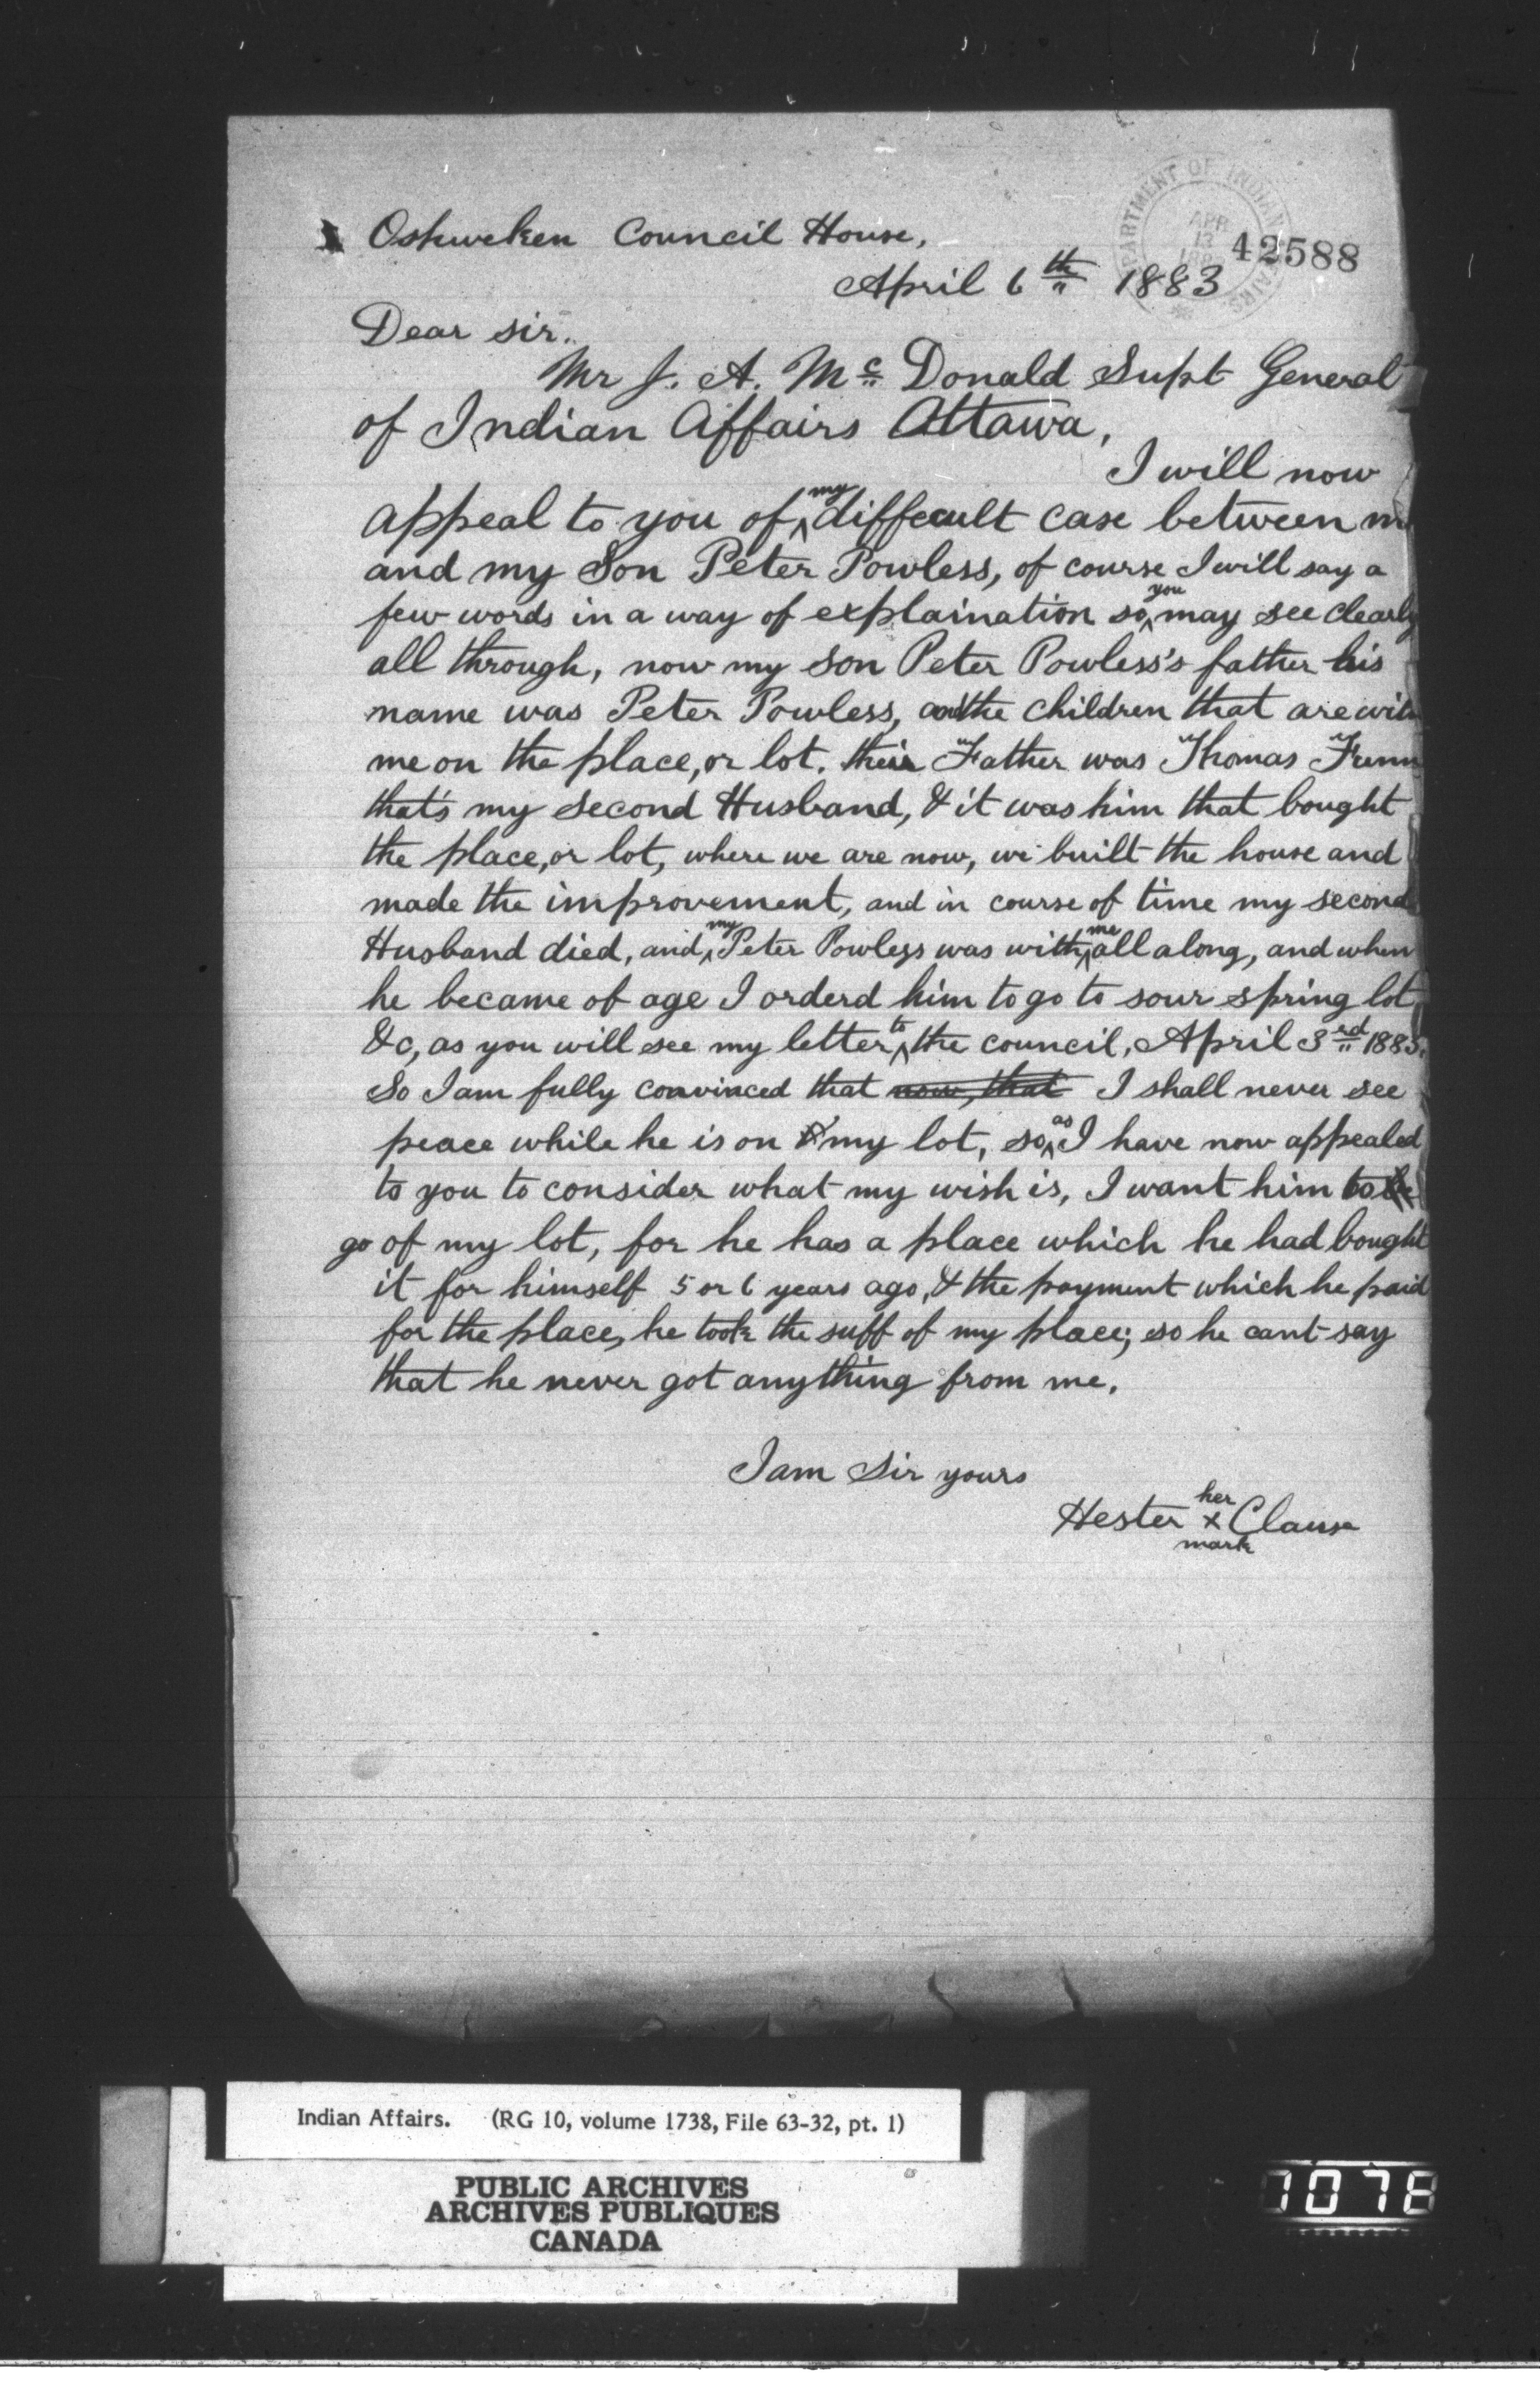 Oshweken Council House,
DEPARTMENT OF INDIAN AFFAIRS
APR
13
42588
April 6th 1883
Dear sir.
Mr J. A. Mc Donald Supt General
of Indian Affairs Ottawa,
I will now
appeal to you of my diffecult case between me
and my Son Peter Powless, of course I will say a
few words in a way of explaination so you may see clearly
all through, now my son Peter Powless's father his
name was Peter Powless, and the children that are with
me on the place, or lot. their Father was Thomas
that's my second Husband, & it was him that bought
the place, or lot, where we are now, we built the house and
made the improvement, and in course of time my second
Husband died, and my Peter Powless was with me all along, and when
he became of age I orderd him to go to sour spring lot
&c, as you will see my letter to the council, April 3rd 1883.
So I am fully convinced that now, that I shall never see
peace while he is on my lot, so as I have now appealed
to you to consider what my wish is, I want him to
go of my lot, for he has a place which he had bought
it for himself 5 or 6 years ago, & the payment which he paid
for the place, he took the suff of my place; so he cant say
that he never got anything from me.
I am Sir yours
her
Hester x Clause
mark
Indian Affairs. (RG 10, volume 1738, File 63-32, pt. 1)
PUBLIC ARCHIVES
ARCHIVES PUBLIQUES
CANADA
1078